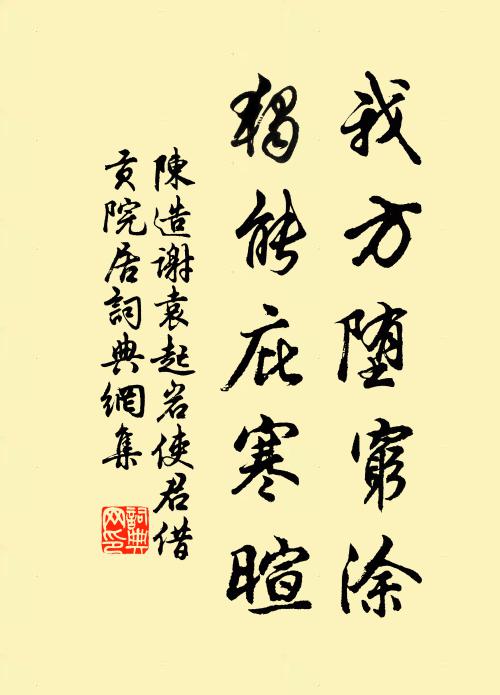 我方堕窮涂
獨能庇寒暄
陳造謝袁起岩使君借
貢院居詞典網集
詞典
网印